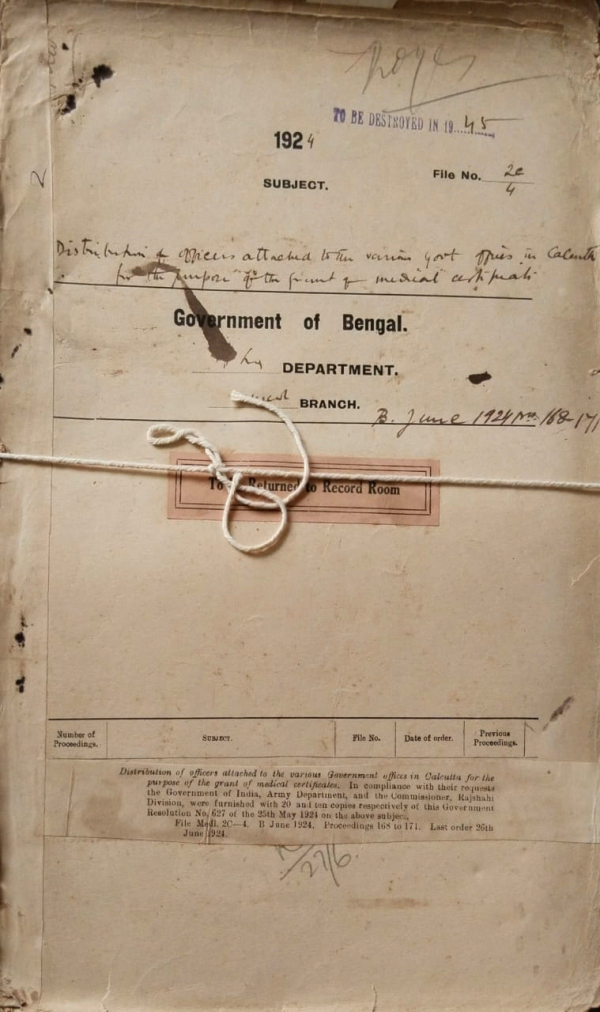 TO BE DESTROYED IN 19 45
1924
File No. 2c/4
SUBJECT.
Distribution of officers attached to the various Govt offices in Calcutta
for the purpose of the grant of medical certificate
Government of Bengal.
DEPARTMENT.
BRANCH.
B. June 1924 Nos. 168-171
To Returned to Record Room
Number of Proceedings.
SUBJECT.
File No.
Date of order.
Previous Proceedings.
Distribution of officers attached to the various Government offices in Calcutta for the
purpose of the grant of medical certificates. In compliance with their requests
the Government of India, Army Department, and the Commissioner, Rajshahi
Division, were furnished with 20 and ten copies respectively of this Government
Resolution No. 627 of the 25th May 1924 on the above subject.
File Medl. 2C—4. B June 1924. Proceedings 168 to 171. Last order 26th
June 1924.
27/6